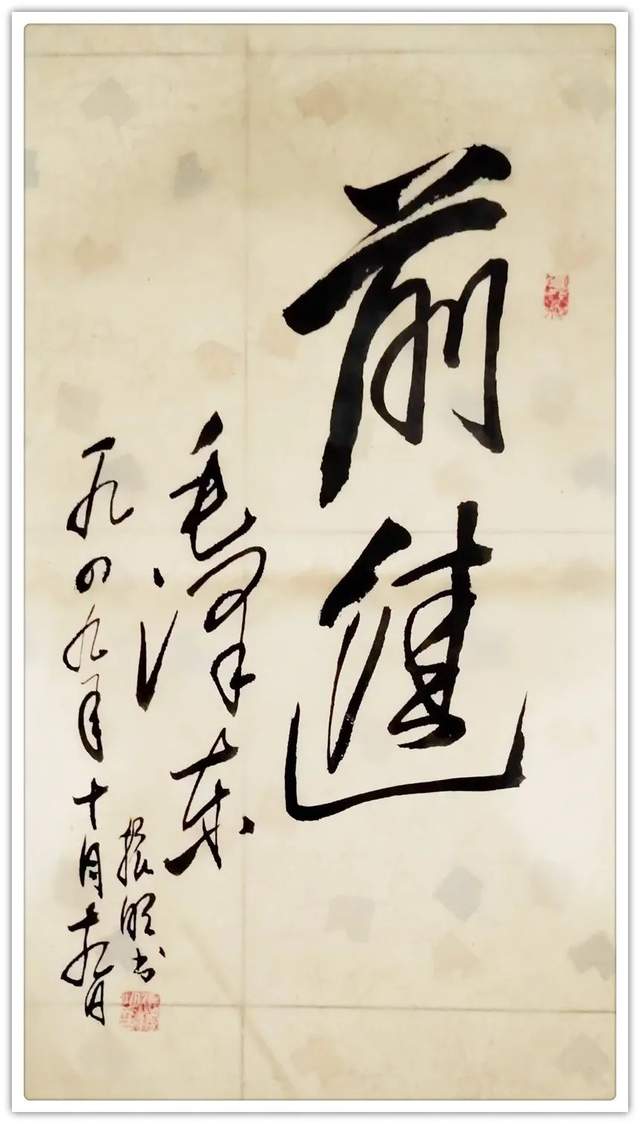 前進
毛澤東
一九四九年十月十九日
振明书